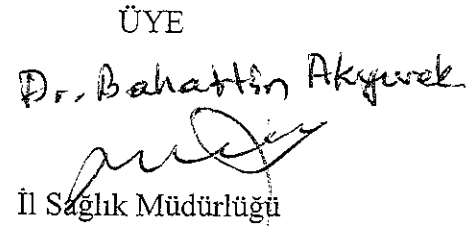 ÜYE
Dr. Bahattin Akyürek
İl Sağlık Müdürlüğü